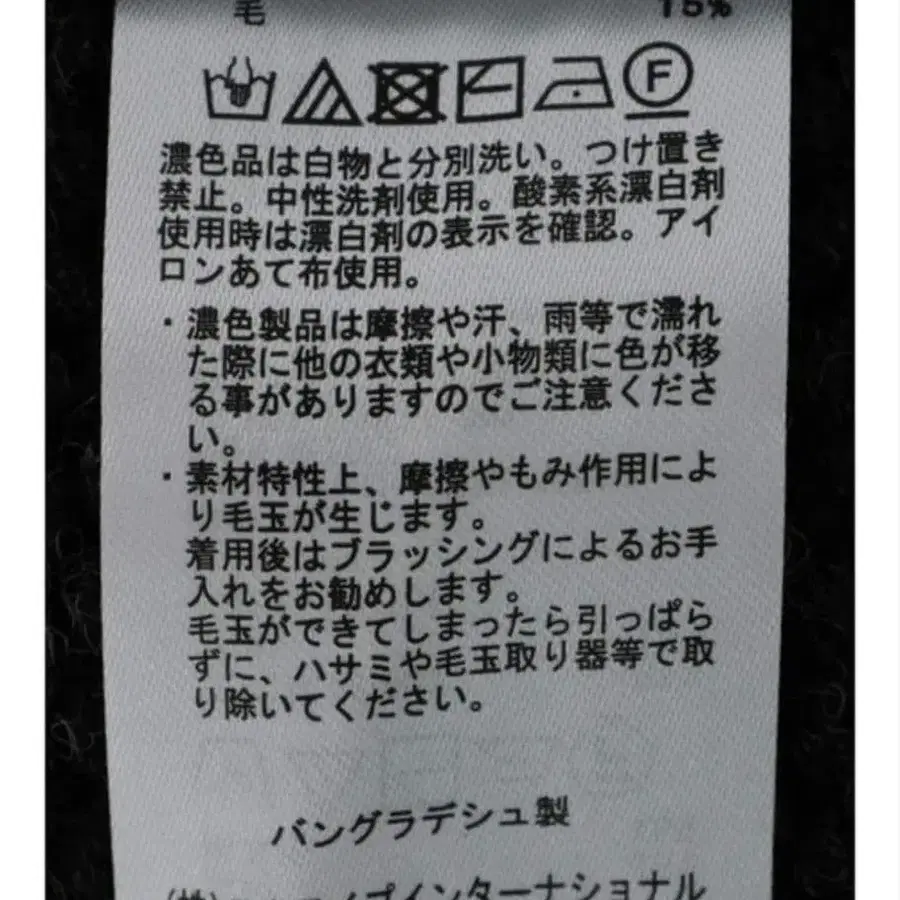 毛 15%
F
濃色品は白物と分別洗い。つけ置き
禁止。中性洗剤使用。酸素系漂白剤
使用時は漂白剤の表示を確認。アイ
ロンあて布使用。
・濃色製品は摩擦や汗、雨等で濡れ
た際に他の衣類や小物類に色が移
る事がありますのでご注意くださ
い。
・素材特性上、摩擦やもみ作用によ
り毛玉が生じます。
着用後はブラッシングによるお手
入れをお勧めします。
毛玉ができてしまったら引っぱら
ずに、ハサミや毛玉取り器等で取
り除いてください。
バングラデシュ製
(株)インターナショナル